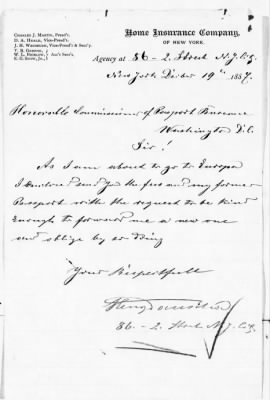 CHARLES J. MARTIN, Presd't.
D. A. HEALD, Vice-Presd't.
J. H. WASHBURN, Vice-Presd't & Sec'y.
T. B. GREENE, }
W. L. BIGELOW, } Ass't Sec's.
E. G. SNOW, Jr., }
Home Insurance Company,
OF NEW YORK.
Agency at 86 - 2. Street N.Y. City
New York December 19th 1887.
Honorable Commissioner of Passport Bureau
Washington D.C.
Sir!
As I am about to go to Europa
I send you the fees and my former
Passport with the request to be kind
Enough to forward me a new one
and oblige by so doing
Your Respectfull
86 - 2. Street N.Y. City.